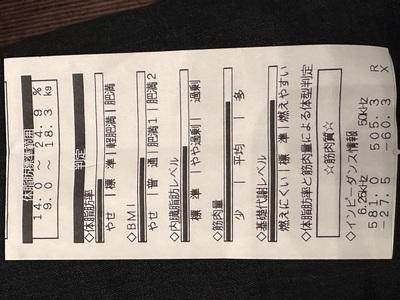 14.0 ～ 24.9 %
9.0 ～ 18.3 kg
判定
◇体脂肪率
やせ|標 準|軽肥満|肥満
◇BMI
やせ|普 通|肥満1|肥満2
◇内臓脂肪レベル
標 準|やや過剰|過剰
◇筋肉量
少 | 平均 | 多
◇基礎代謝レベル
燃えにくい|標 準|燃えやすい
◇体脂肪率と筋肉量による体型判定
☆筋肉質☆
◇インピーダンス情報
6.25kHz 50kHz
581.7 505.3 R
-27.5 -60.3 X